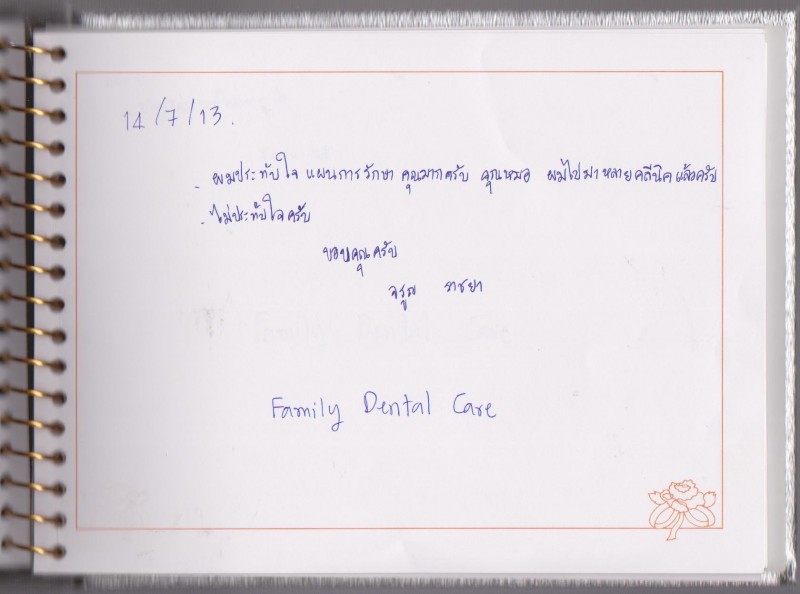 14/7/13.
. ผมประทับใจ แผนการรักษา คุณมากครับ คุณหมอ ผมไปมาหลายคลีนิคแล้วครับ
. ไม่ประทับใจครับ
ขอบคุณครับ
จรูญ ราชยา
Family Dental Care